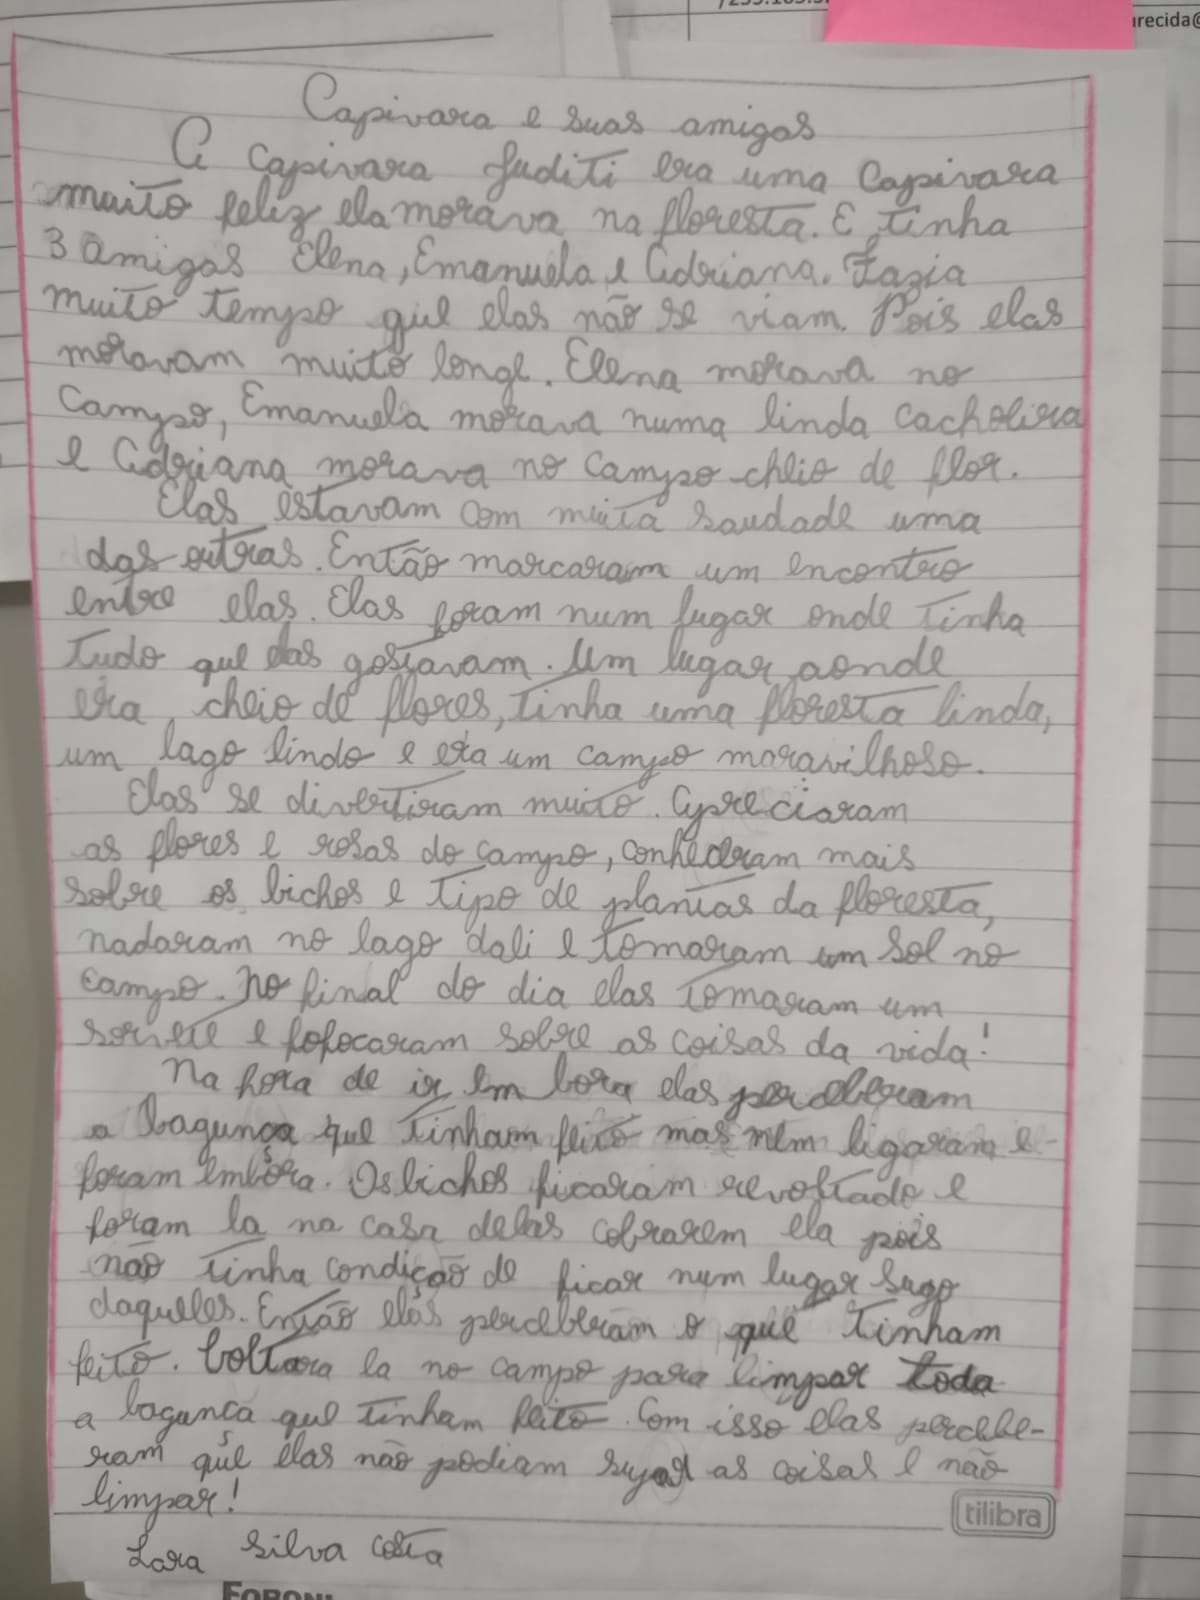 arecida@
Capivara e suas amigas
A capivara Juditi era uma Capivara
muito feliz ela morava na floresta. E tinha
3 amigas Elena, Emanuela e Adriana. Fazia
muito tempo que elas não se viam. Pois elas
moravam muito longe. Elena morava no
Campo, Emanuela morava numa linda cachoeira
e Adriana morava no campo cheio de flor.
Elas estavam com muita saudade uma
das outras. Então marcaram um encontro
entre elas. Elas foram num lugar onde tinha
tudo que elas gostavam. Um lugar aonde
era cheio de flores, tinha uma floresta linda,
um lago lindo e era um campo maravilhoso.
Elas se divertiram muito. Apreciaram
as flores e rosas do campo, conheceram mais
sobre os bichos e tipo de plantas da floresta,
nadaram no lago dali e tomaram um sol no
campo. No final do dia elas tomaram um
sorvete e fofocaram sobre as coisas da vida!
Na hora de ir em bora elas perceberam
a bagunça que tinham feito mas nem ligaram e
foram embora. Os bichos ficaram revoltado e
foram la na casa delas cobrarem ela pois
não tinha condição de ficar num lugar sugo
daqueles. Então elas perceberam o que tinham
feito. Voltara la no campo para limpar toda
a bagunça que tinham feito. Com isso elas percebe-
ram que elas não podiam sujar as coisas e não
limpar!
tilibra
Lara Silva Costa
FORONI